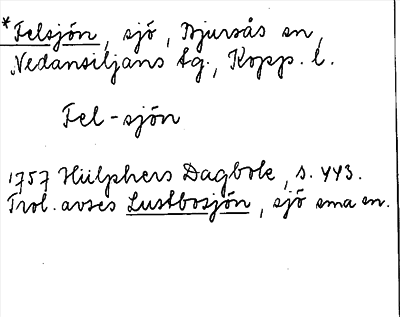 *Felsjön, sjö, Bjursås sn,
Nedansiljans fg., Kopp. l.
Fel-sjön
1757 Hülphers Dagbok, s. 443.
Trol. avses Lustbosjön, sjö sma sn.